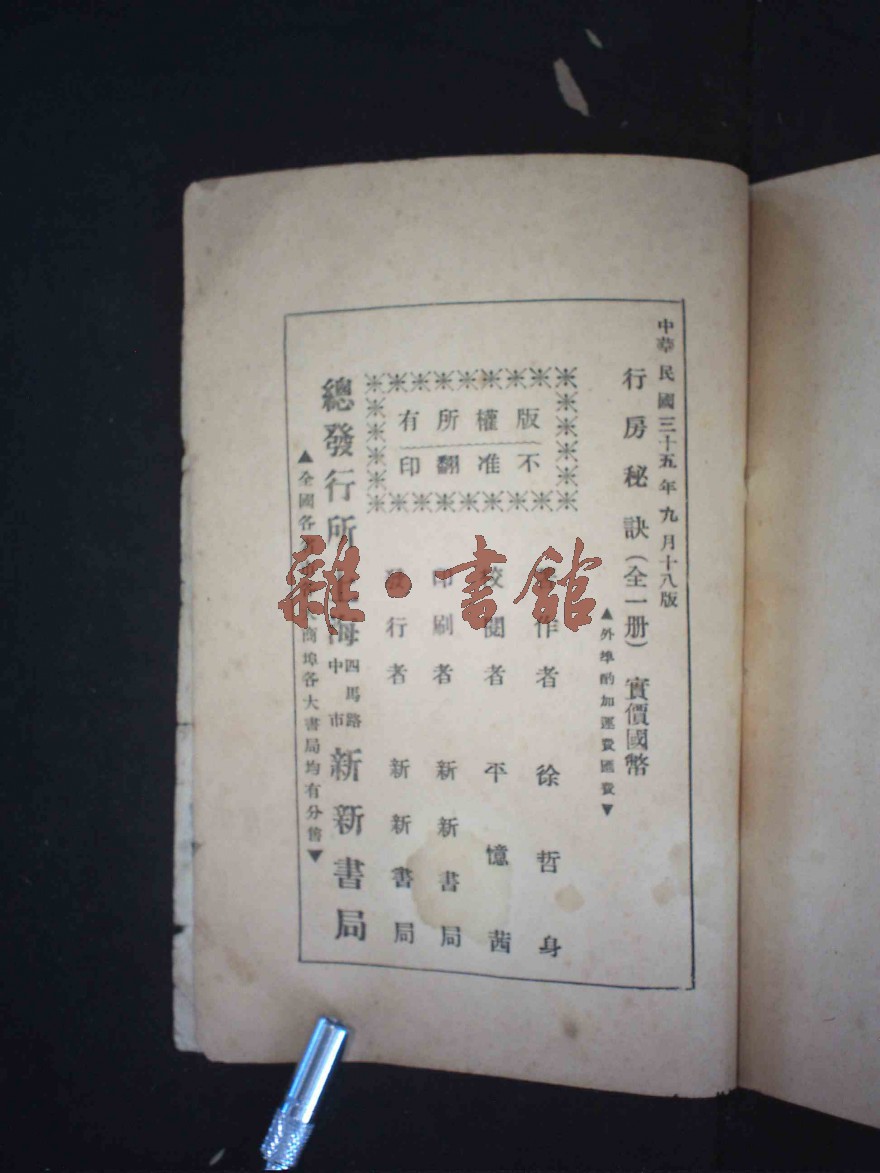 中華民國三十五年九月十八版
行房秘訣(全一册) 實價國幣
▲外埠酌加運費匯費▼
版權所有
不准翻印
作者 徐哲身
校閱者 平憶茜
印刷者 新新書局
發行者 新新書局
總發行所 上海 四馬路中市 新新書局
▲全國各 商埠各大書局均有分售▼
雜·書館